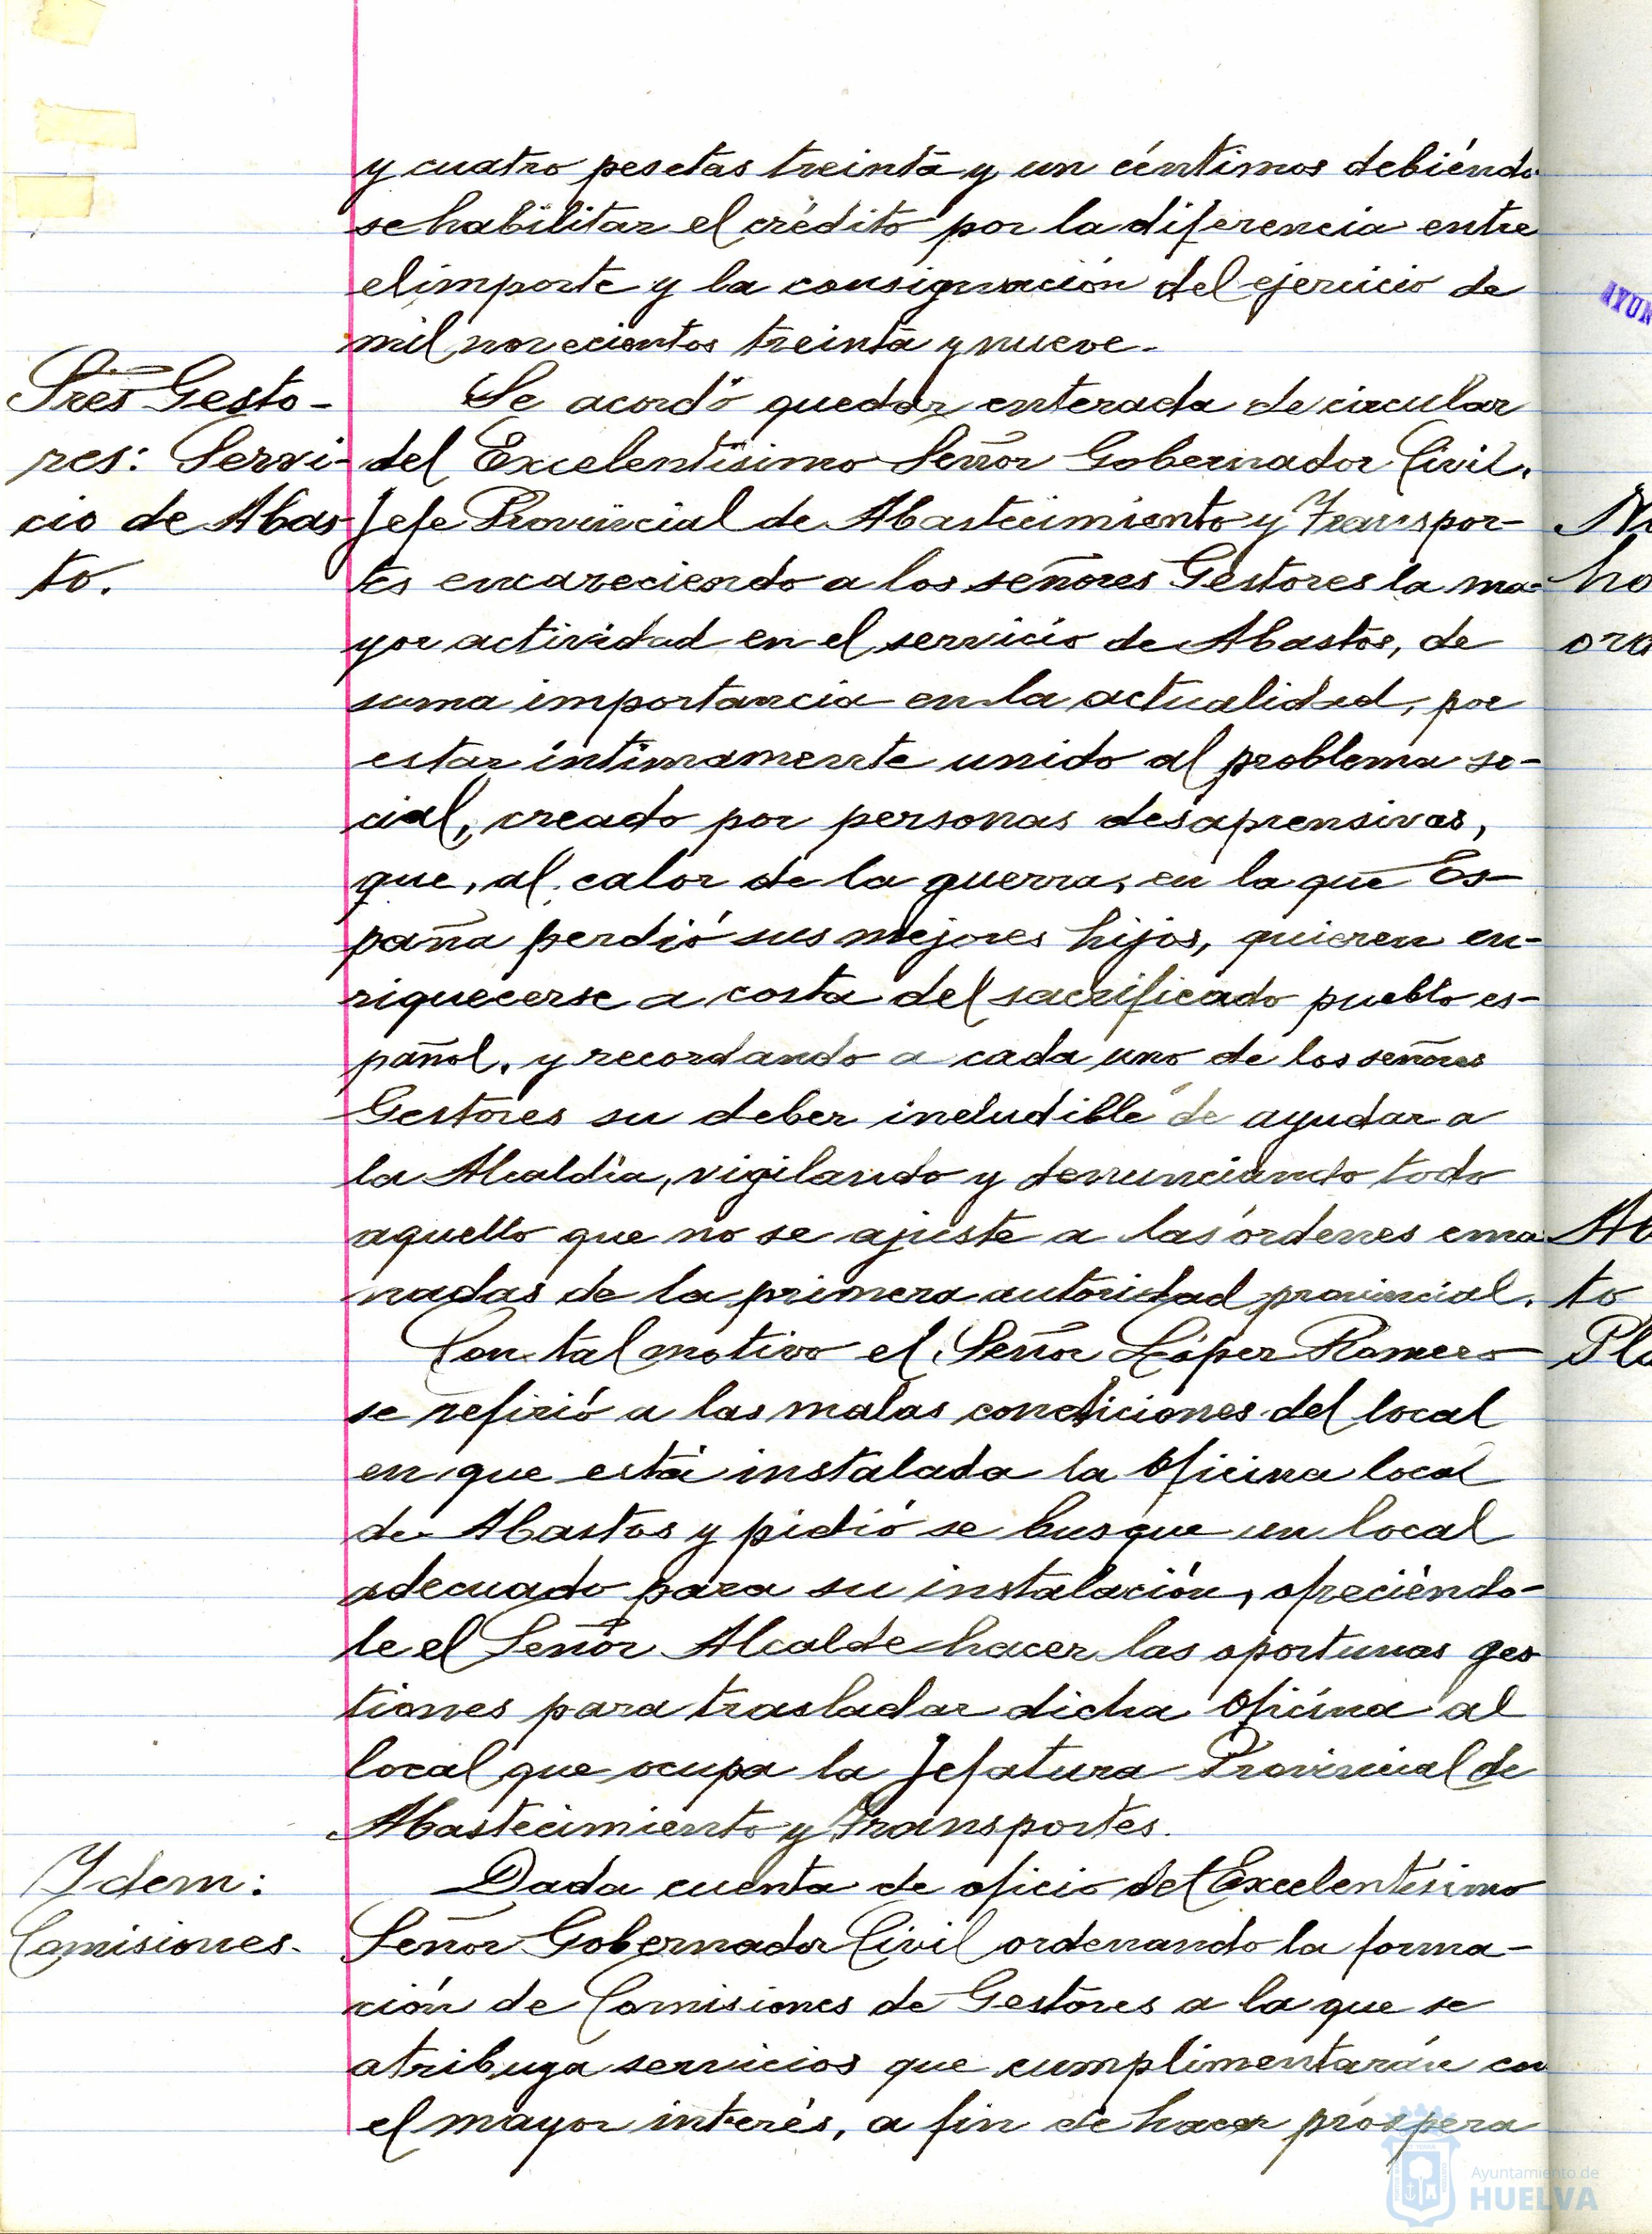 y cuatro pesetas treinta y un céntimos debiéndo
se habilitar el crédito por la diferencia entre
el importe y la consignación del ejercicio de
mil novecientos treinta y nueve.
Sres Gesto-
res: Servi-
cio de Abas
to.
Se acordó quedar enterada de circular
del Excelentísimo Señor Gobernador Civil,
Jefe Provincial de Abastecimiento y Transpor-
tes encareciendo a los señores Gestores la ma-
yor actividad en el servicio de Abastos, de
suma importancia en la actualidad, por
estar íntimamente unido al problema so-
cial, creado por personas desaprensivas,
que, al calor de la guerra, en la que Es-
paña perdió sus mejores hijos, quieren en-
riquecerse a costa del sacrificado pueblo es-
pañol, y recordando a cada uno de los señores
Gestores su deber ineludible de ayudar a
la Alcaldía, vigilando y denunciando todo
aquello que no se ajuste a las órdenes ema-
nadas de la primera autoridad provincial.
Con tal motivo el Señor López Romero
se refirió a las malas condiciones del local
en que está instalada la Oficina local
de Abastos y pidió se busque un local
adecuado para su instalación, ofreciéndo-
le el Señor Alcalde hacer las oportunas ges
tiones para trasladar dicha Oficina al
local que ocupa la Jefatura Provincial de
Abastecimiento y Transportes.
Ydem:
Comisiones.
Dada cuenta de oficio del Excelentísimo
Señor Gobernador Civil ordenando la forma-
ción de Comisiones de Gestores a la que se
atribuya servicios que cumplimentarán con
el mayor interés, a fin de hacer próspera
AYUN
ho
ora
Ab
to
Pla
Ayuntamiento de
HUELVA